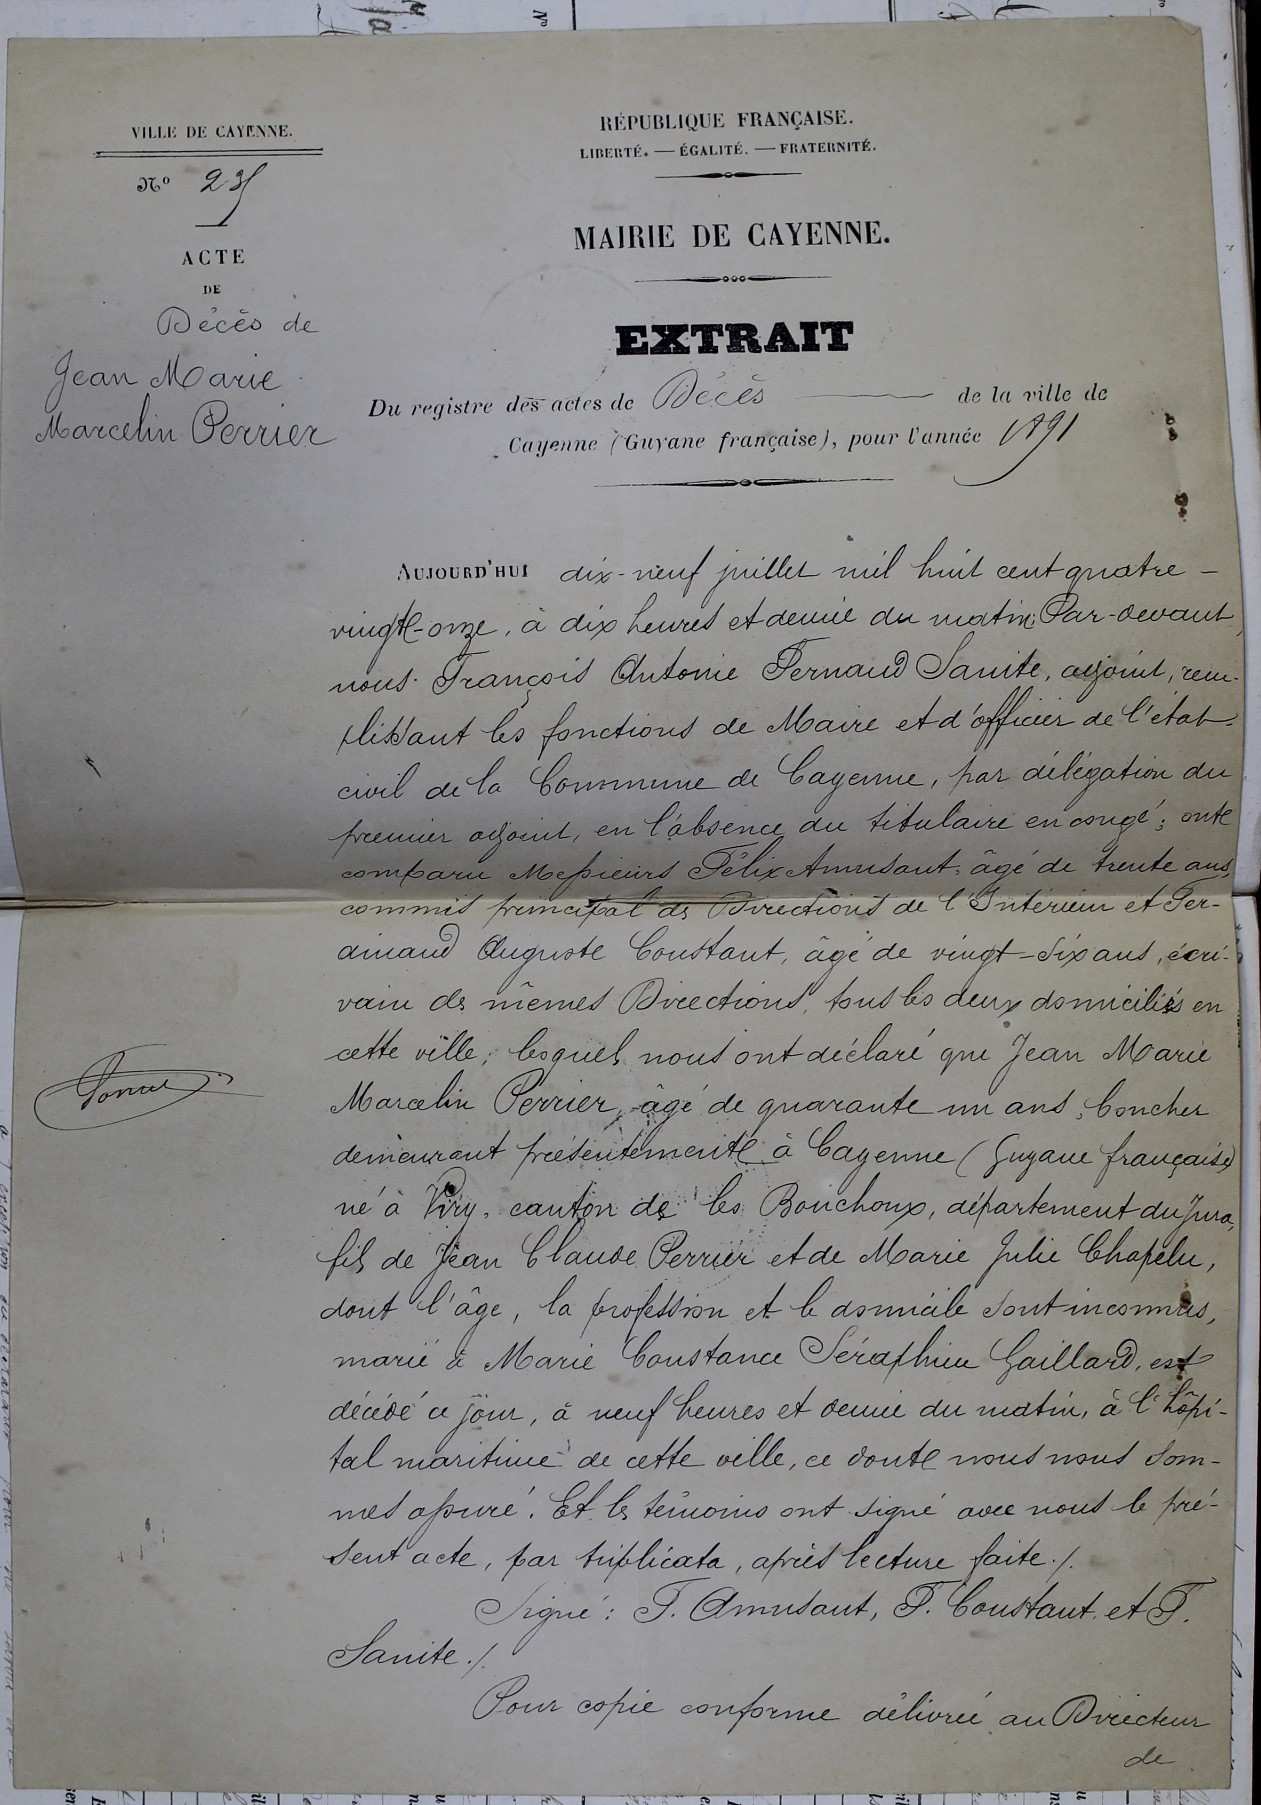 VILLE DE CAYENNE.
ACTE
DE
Décès de
Jean Marie
Marcelin Perrier
RÉPUBLIQUE FRANÇAISE.
LIBERTÉ. — ÉGALITÉ. — FRATERNITÉ.
MAIRIE DE CAYENNE.
EXTRAIT
Du registre des actes de Décès de la ville de
Cayenne (Guyane française), pour l'année 1891
AUJOURD'HUI dix-neuf juillet mil huit cent quatre-
vingt-onze, à dix heures et demie du matin; Par-devant
nous François Antonie Fernand Sanite, adjoint, rem-
plissant les fonctions de Maire et d'officier de l'état
civil de la Commune de Cayenne, par délégation du
premier adjoint, en l'absence du titulaire en congé; ont
comparu Messieurs Félix Amusant, âgé de trente ans,
commis principal des Directions de l'Intérieur et Fer-
dinand Auguste Constant, âgé de vingt-six ans, écri-
vain des mêmes Directions, tous les deux domiciliés en
cette ville; lesquels nous ont déclaré que Jean Marie
Marcelin Perrier, âgé de quarante un ans, Concher
demeurant présentement à Cayenne (Guyane française)
né à Viry, canton de les Bouchoux, département du Jura,
fils de Jean Claude Perrier et de Marie Julie Chapelu,
dont l'âge, la profession et le domicile sont inconnus,
marié à Marie Constance Séraphine Gaillard, est
décédé ce jour, à neuf heures et demie du matin, à l'hôpi-
tal maritime de cette ville, ce dont nous nous som-
mes assuré. Et les témoins ont signé avec nous le pré-
sent acte, par triplicata, après lecture faite./.
Signé: F. Amusant, F. Constant et F.
Sanite./.
Pour copie conforme délivrée au Directeur
de